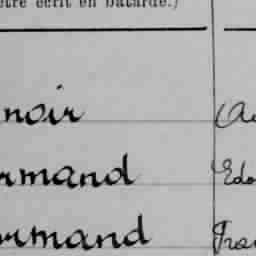 être écrit en bâtarde.)
noir
rmand Edo
rmand Fra